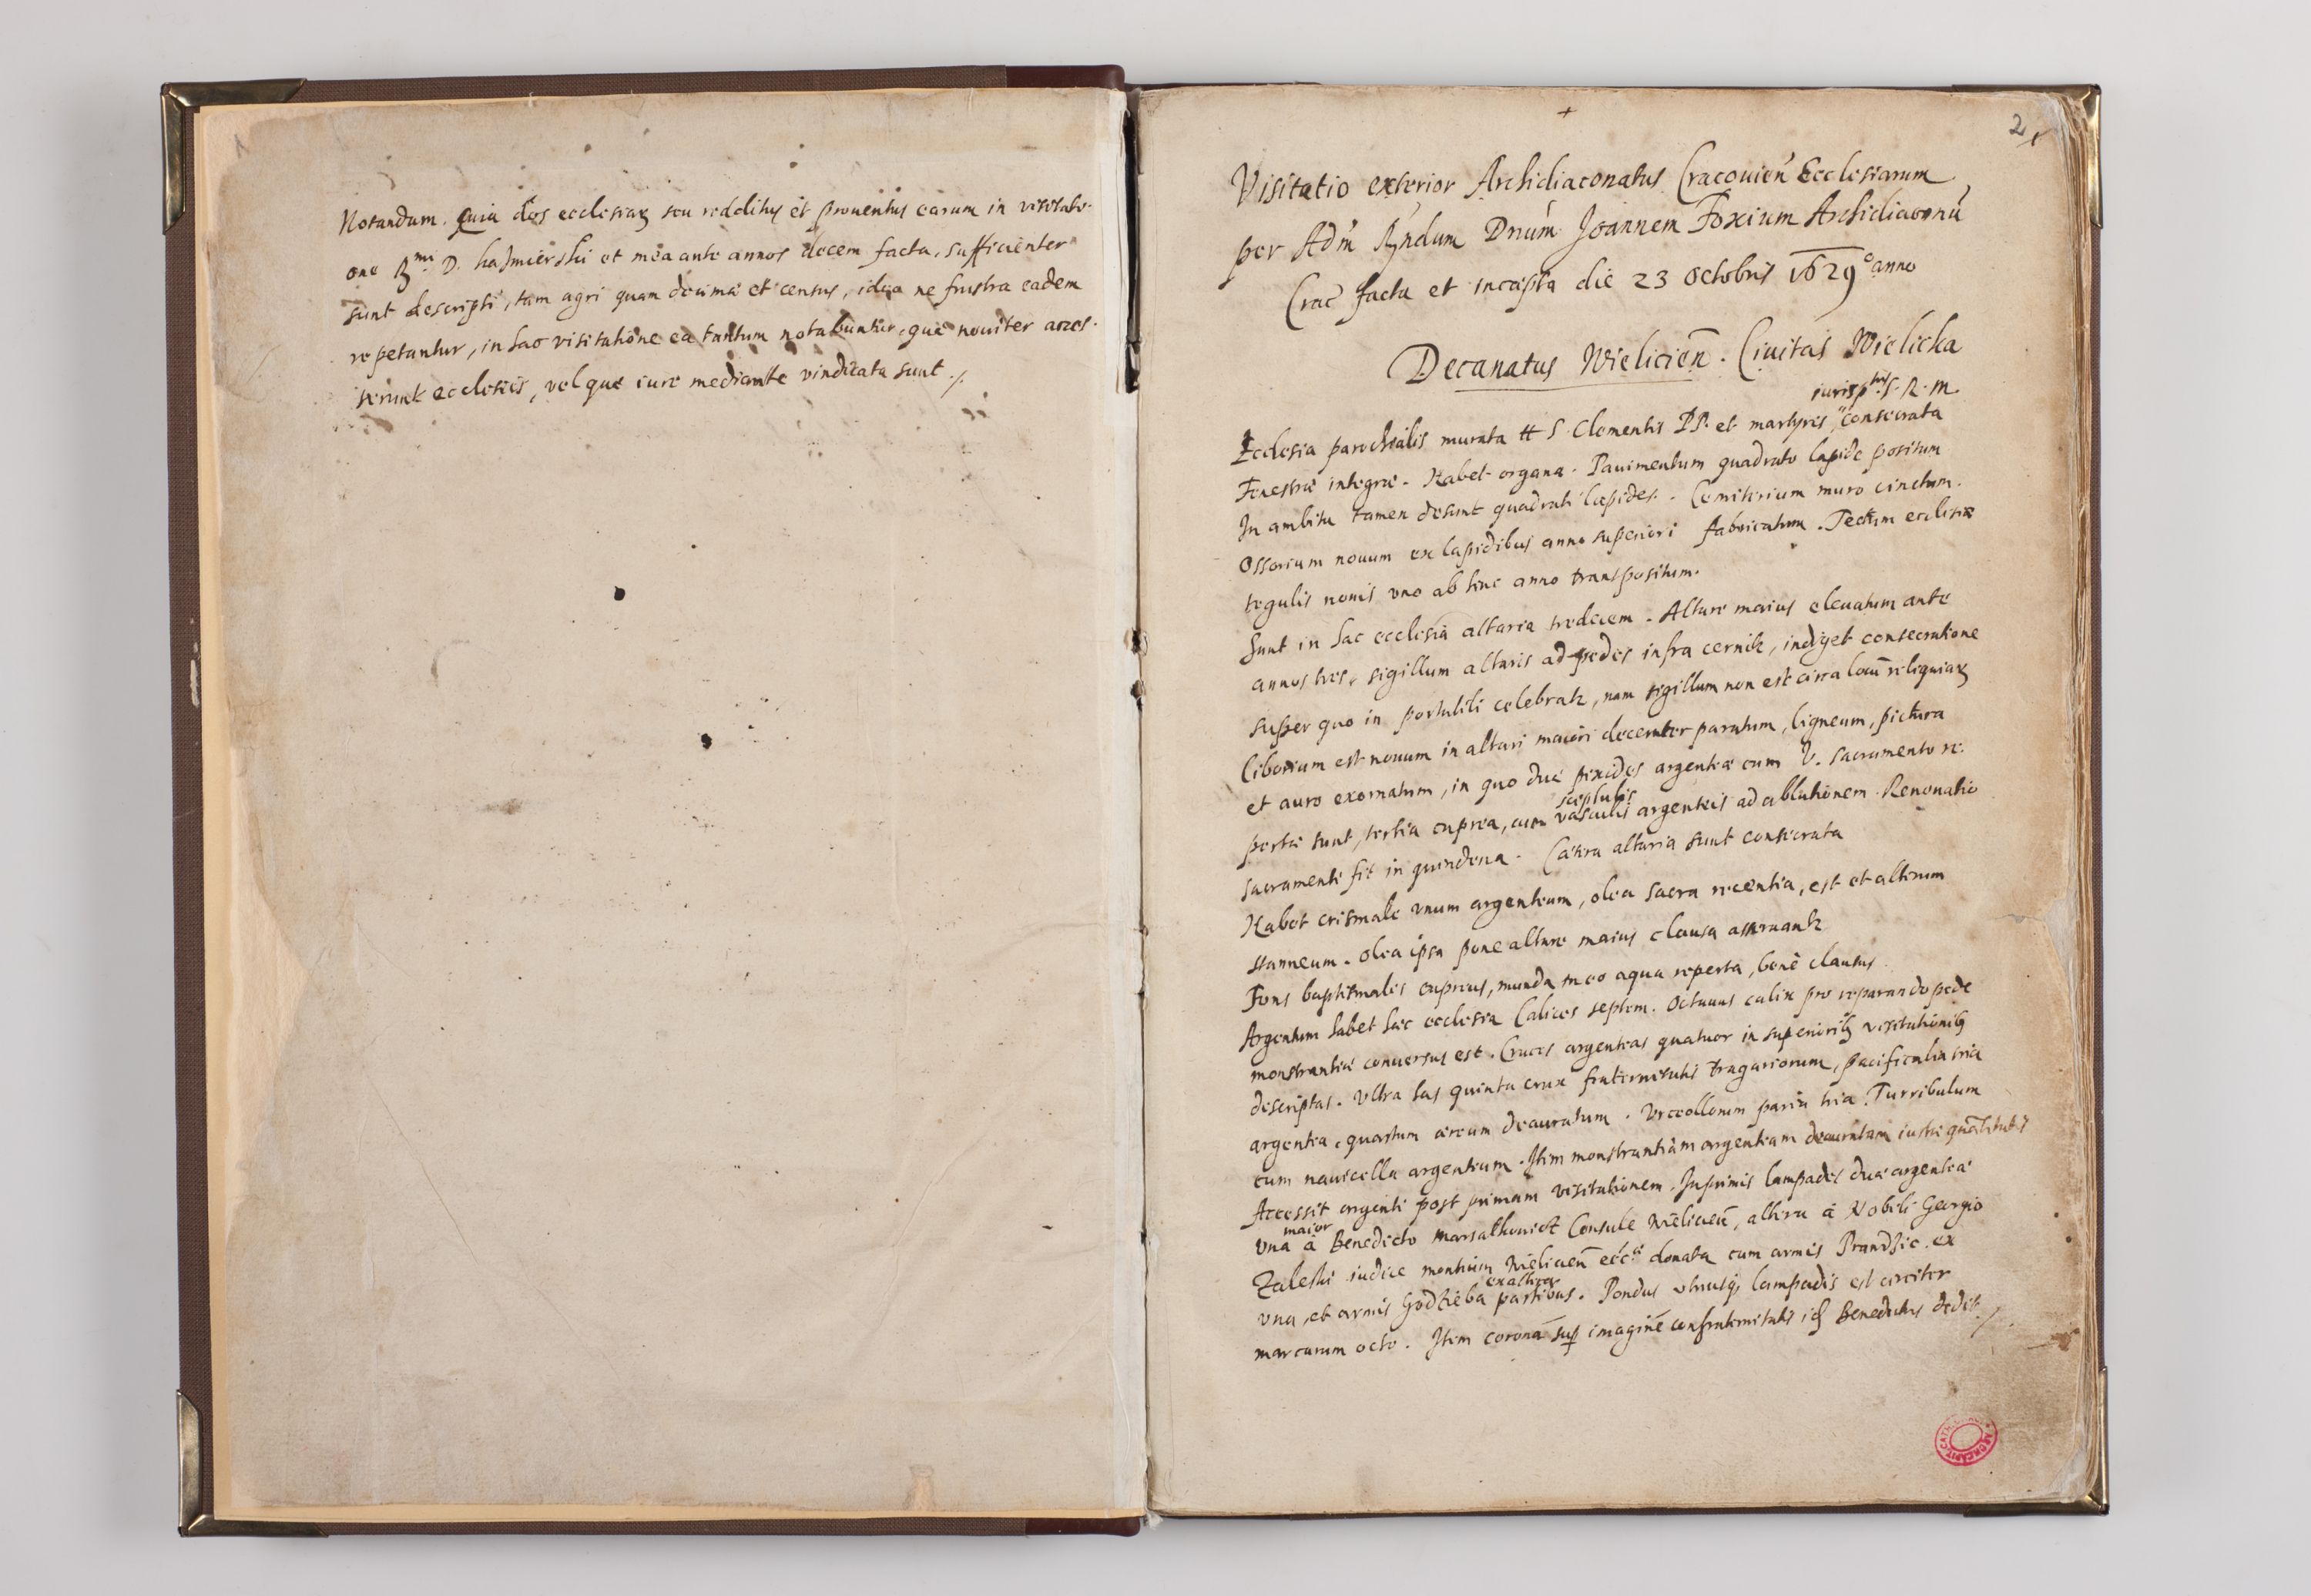 Notandum. Quia dos ecclesiaꝝ seu redditus et prouentus earum in visitati-
one Rmi D. Kazmierski et mea ante annos decem facta, sufficienter
sunt descripti, tam agri quam decimæ et census, ideo ne frustra eadem
repetantur, in hac visitatione ea tantum notabuntur, quæ nouiter acces-
serunt ecclesiis, vel quæ iure mediante vindicata sunt ./.
2
Visitatio exterior Archidiaconatus Cracouień Ecclesiarum
per Adm Rndum Dnum Joannem Foxium Archidiaconū
Crac̄ facta et incæpta die 23 Octobris 1629° anno
Decanatus Wielicień. Ciuitas Wielicka
iurisptus S. R. M.
Ecclesia parochialis murata tt S Clementis PP. et martyris consecrata
Fenestræ integræ. Habet organa. Pauimentum quadrato lapide positum
In ambitu tamen desunt quadrati lapides. Cemiterium muro cinctum.
Ossorium nouum ex lapidibus anno superiori fabricatum. Tectum ecclesiæ
tegulis nouis vno ab hinc anno transpositum.
Sunt in hac ecclesia altaria tredecem. Altare maius eleuatum ante
annos tres, sigillum altaris ad pedes infra cernitr, indiget consecratione
super quo in portatili celebratr, nam sigillum non est circa locū reliquiaꝝ
Ciborium est nouum in altari maiori decenter paratum, ligneum, pictura
et auro exornatum, in quo duæ pixides argenteæ cum V. sacramento re-
pertæ sunt, tertia cuprea, cum vasculis argenteis ad ablutionem. Renouatio
sacramenti fit in quindena. Cætera altaria sunt consecrata
Habet crismale vnum argenteum, olea sacra recentia, est et alterum
stanneum. Olea ipsa pone altare maius clausa asseruantr
Fons baptismalis cupreus, munda in eo aqua reperta, benè clausus
Argentum habet hæc ecclesia Calices septem. Octauus calix pro reparando pede
monstrantiæ conuersus est. Cruces argenteas quatuor in superioribꝫ visitationibꝫ
descriptas. Vltra has quinta crux fraternitatis tragariorum, pacificalia tria
argentea, quartum æreum deauratum. Vrceollorum paria tria. Turribulum
cum nauicella argenteum. Item monstrantiam argenteam deauratam iustæ quātitatis
Accessit argenti post primam visitationem. Inprimis lampades duæ argenteæ
maior
vna à Benedicto Marsalkouicz Consule Wielicień, altera à Nobili Georgio
Zaleski iudice montium Wielicień donata cum armis Prawdzic ex
ex altera
vna, et armis Godzięba partibus. Pondus vtriusqꝫ lampadis est circiter
marcarum octo. Item coronā sup imaginē confraternitatis id Benedictus dedit ./.